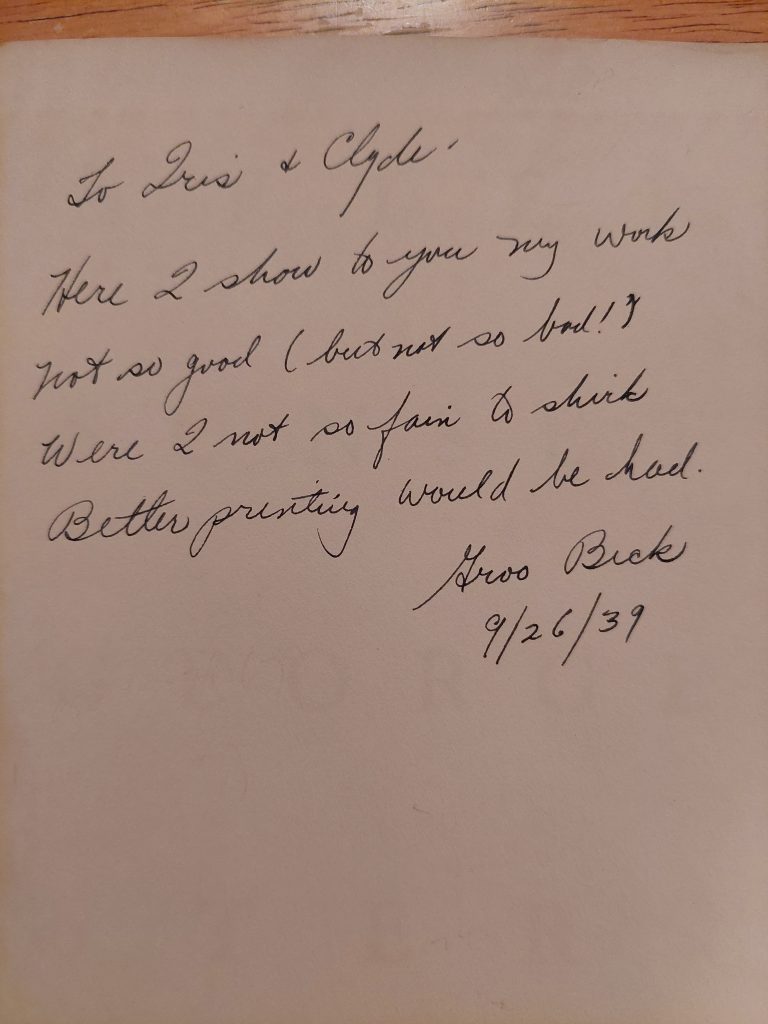 To Iris & Clyde.
Here I show to you my work
Not so good (but not so bad!)
Were I not so fain to shirk
Better printing would be had.
Groo Beck
9/26/39